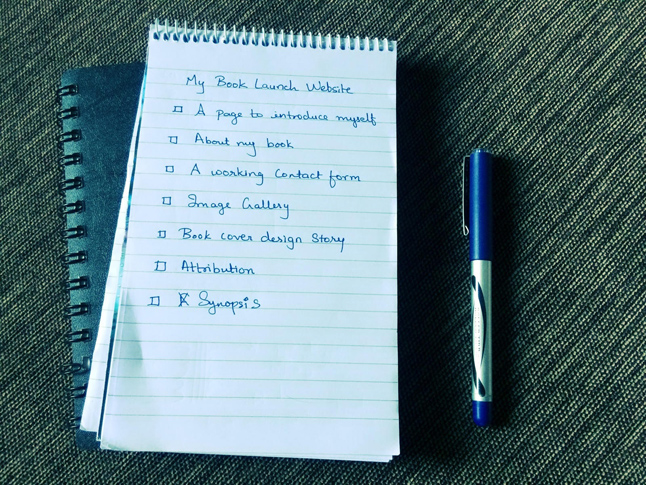 My Book Launch Website
☐ A page to introduce myself
☐ About my book
☐ A working Contact form
☐ Image Gallery
☐ Book cover design story
☐ Attribution
☐ Synopsis